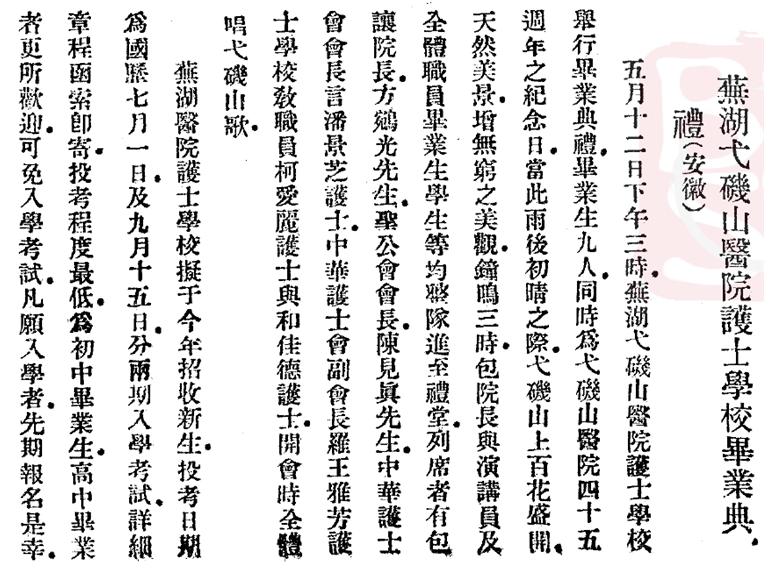 蕪湖弋磯山醫院護士學校畢業典
禮(安徽)
五月十二日下午三時蕪湖弋磯山醫院護士學校
舉行畢業典禮畢業生九人同時爲弋磯山醫院四十五
週年之紀念日當此雨後初晴之際弋磯山上百花盛開
天然美景增無窮之美觀鐘鳴三時包院長與演講員及
全體職員畢業生學生等均整隊進至禮堂列席者有包
讓院長方鵷光先生聖公會會長陳見眞先生中華護士
會會長言潘景芝護士中華護士會副會長羅王雅芳護
士學校敎職員柯愛麗護士與和佳德護士開會時全體
唱弋磯山歌
蕪湖醫院護士學校擬于今年招收新生投考日期
爲國曆七月一日及九月十五日分兩期入學考試詳細
章程函索卽寄投考程度最低爲初中畢業生高中畢業
者更所歡迎可免入學考試凡願入學者先期報名是幸